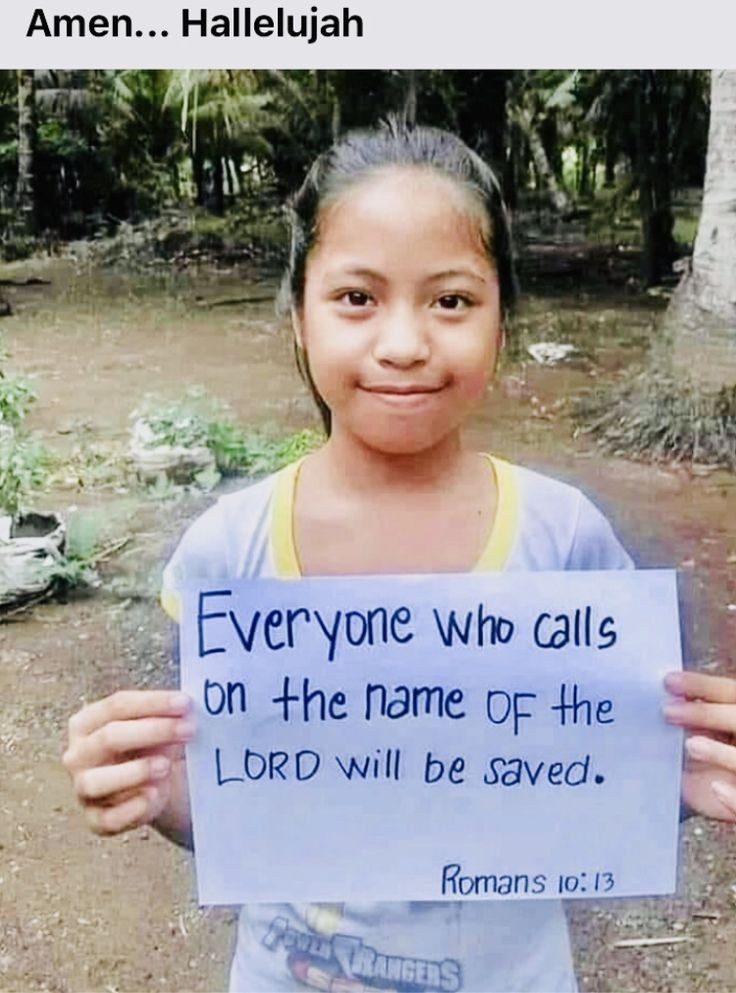 Amen... Hallelujah
Everyone who calls
on the name OF the
LORD will be saved.
Romans 10:13
POWER RANGERS